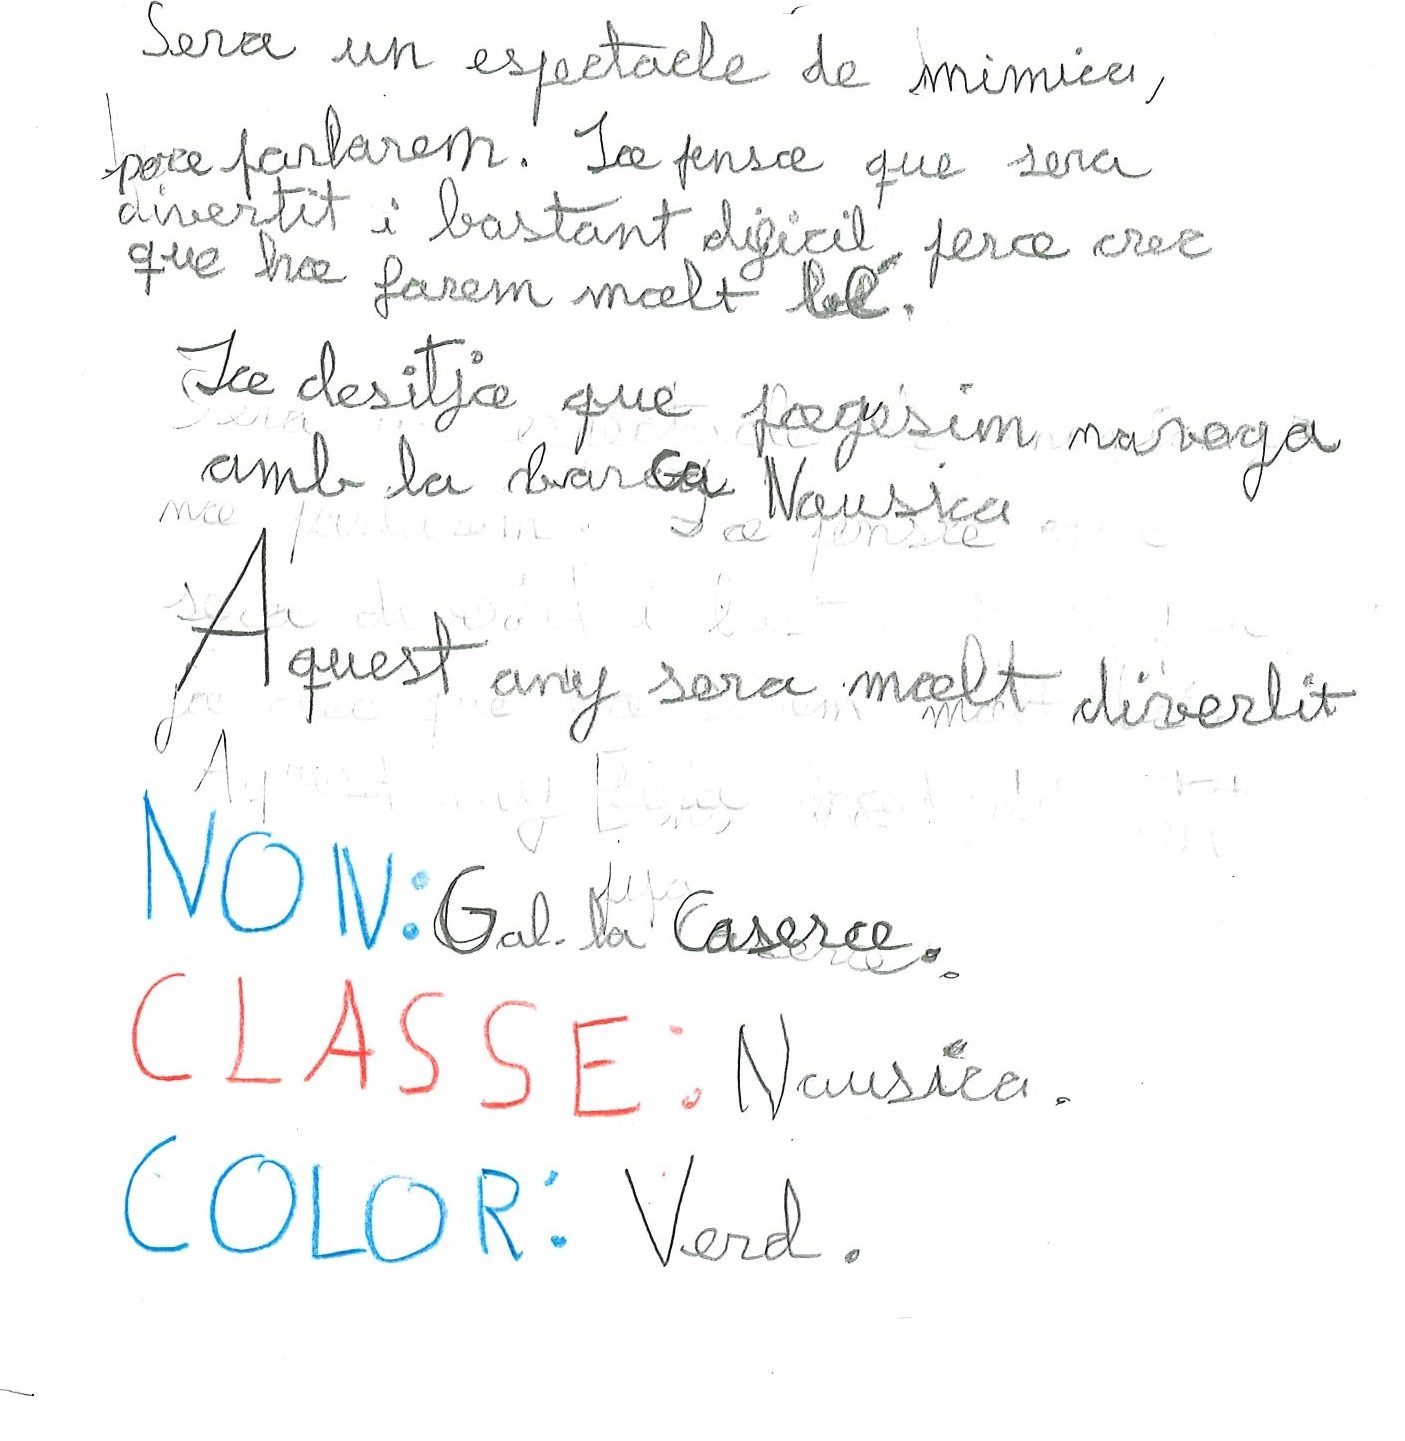 Sera un espectacle de mimica,
poce parlarem. Io penso que sera
divertit i bastant dificil, pero crec
que ho farem molt bé.
Io desitjo que poguesim navega
amb la barca Nausica
Aquest any sera molt divertit
NON: Gal·la Casero.
CLASSE: Nausica.
COLOR: Verd.